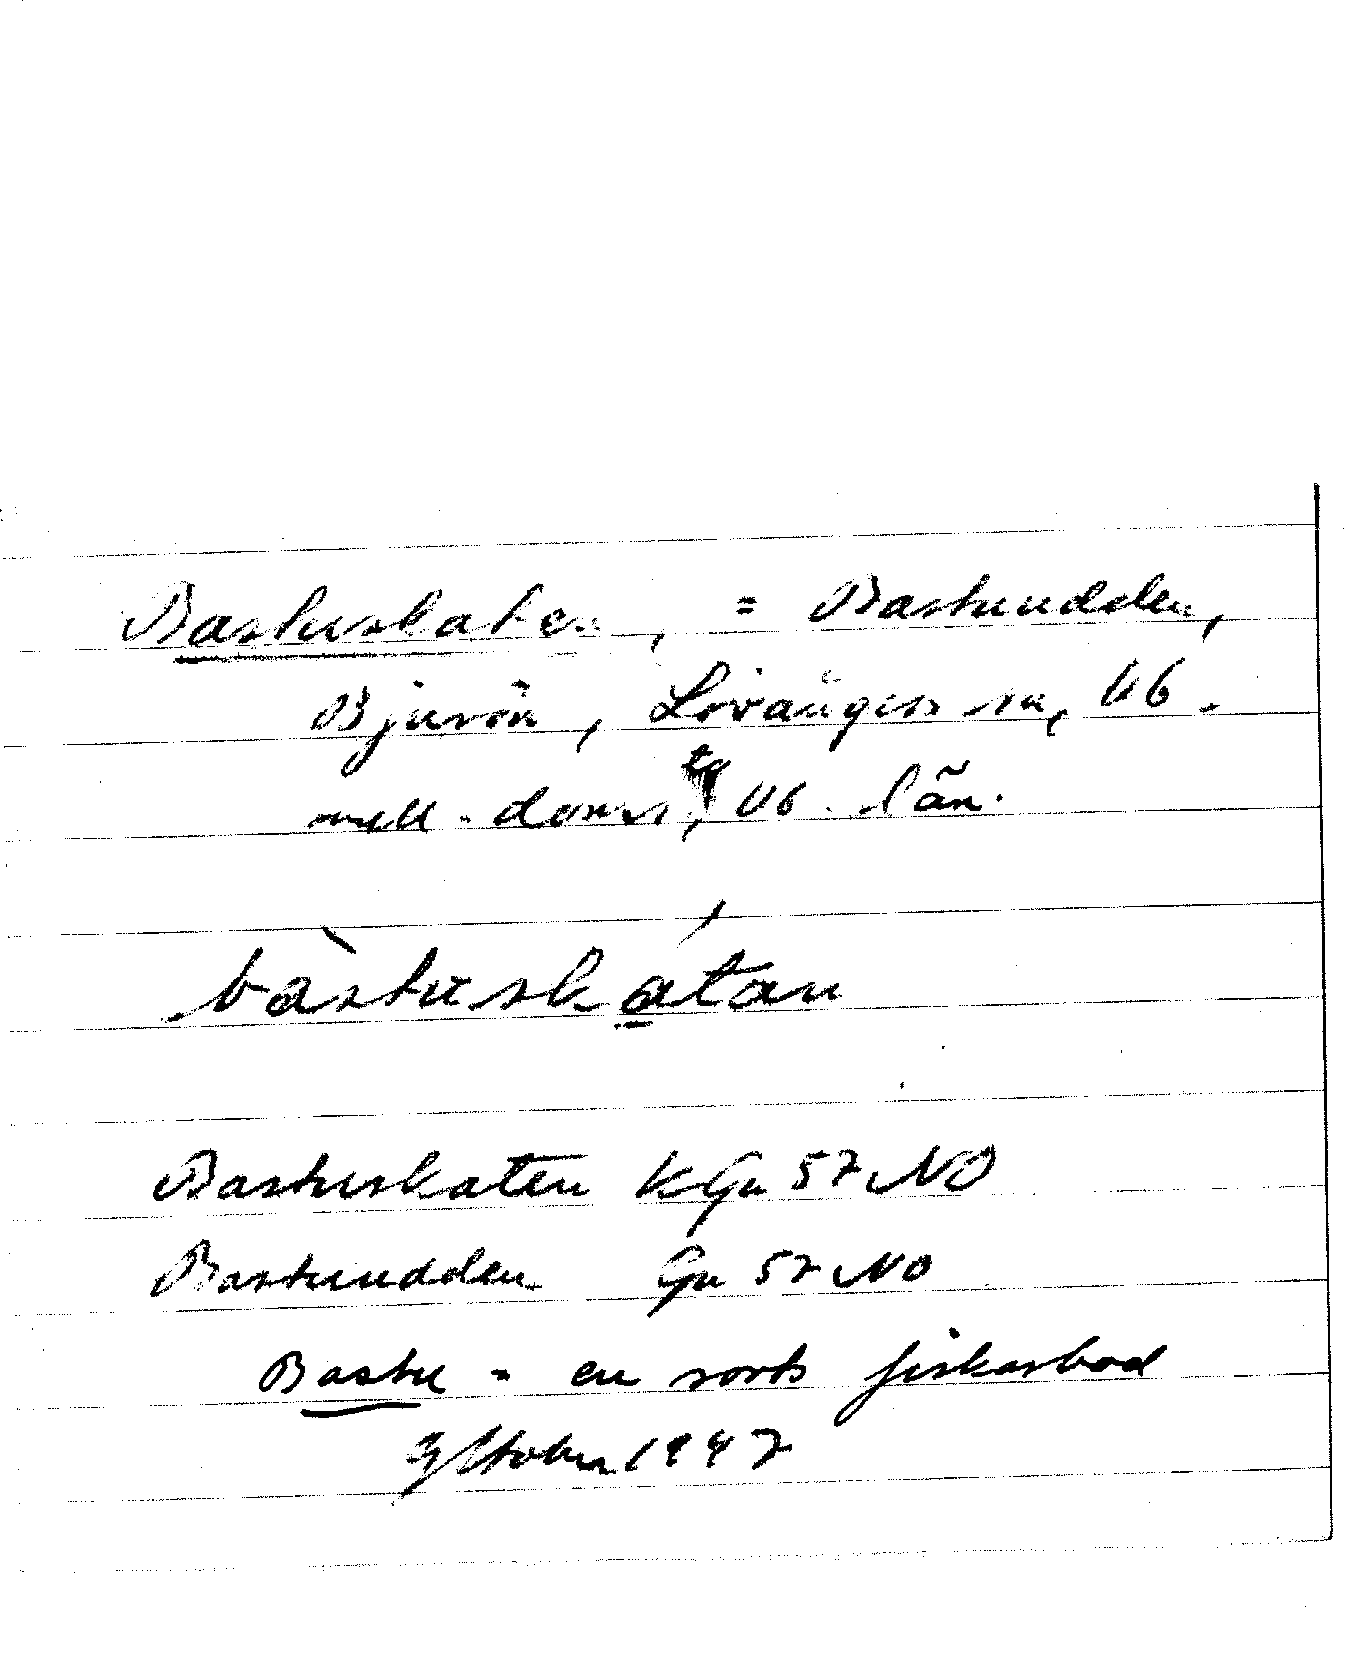 Bastuskaten, = Bastuudden,
Bjurön, Lövångers sn, Vb.
mell. doms tg, Vb. län.
bàstuskátan
Bastuskaten KGn 57 NO
Bastuudden Gn 57 NO
Bastu = en sorts fiskarbod
Oktober 1947